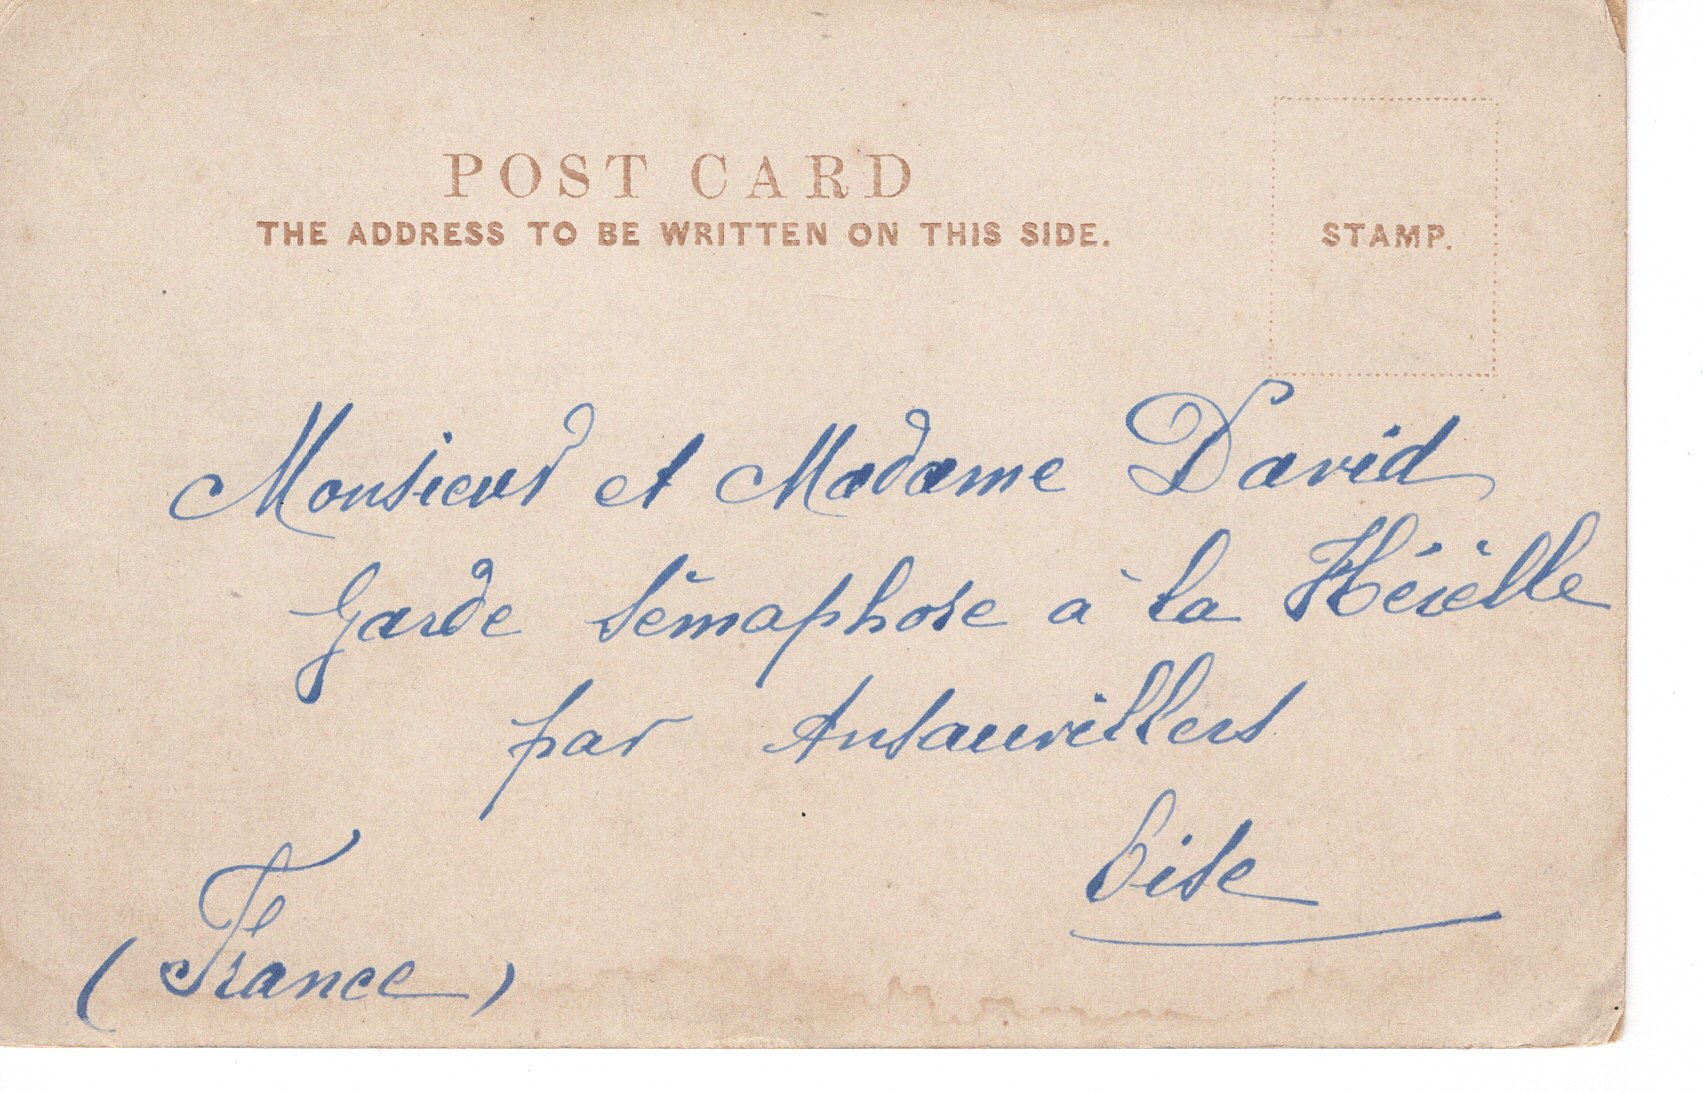 POST CARD
THE ADDRESS TO BE WRITTEN ON THIS SIDE.
STAMP.
Monsieur et Madame David
Garde Sémaphore à la Hérèlle
par Ansauvillers
Oise
(France)